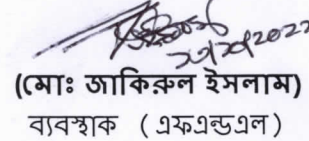 (মোঃ জাকিরুল ইসলাম)
ব্যবস্থাপক ( এফএন্ডএল)